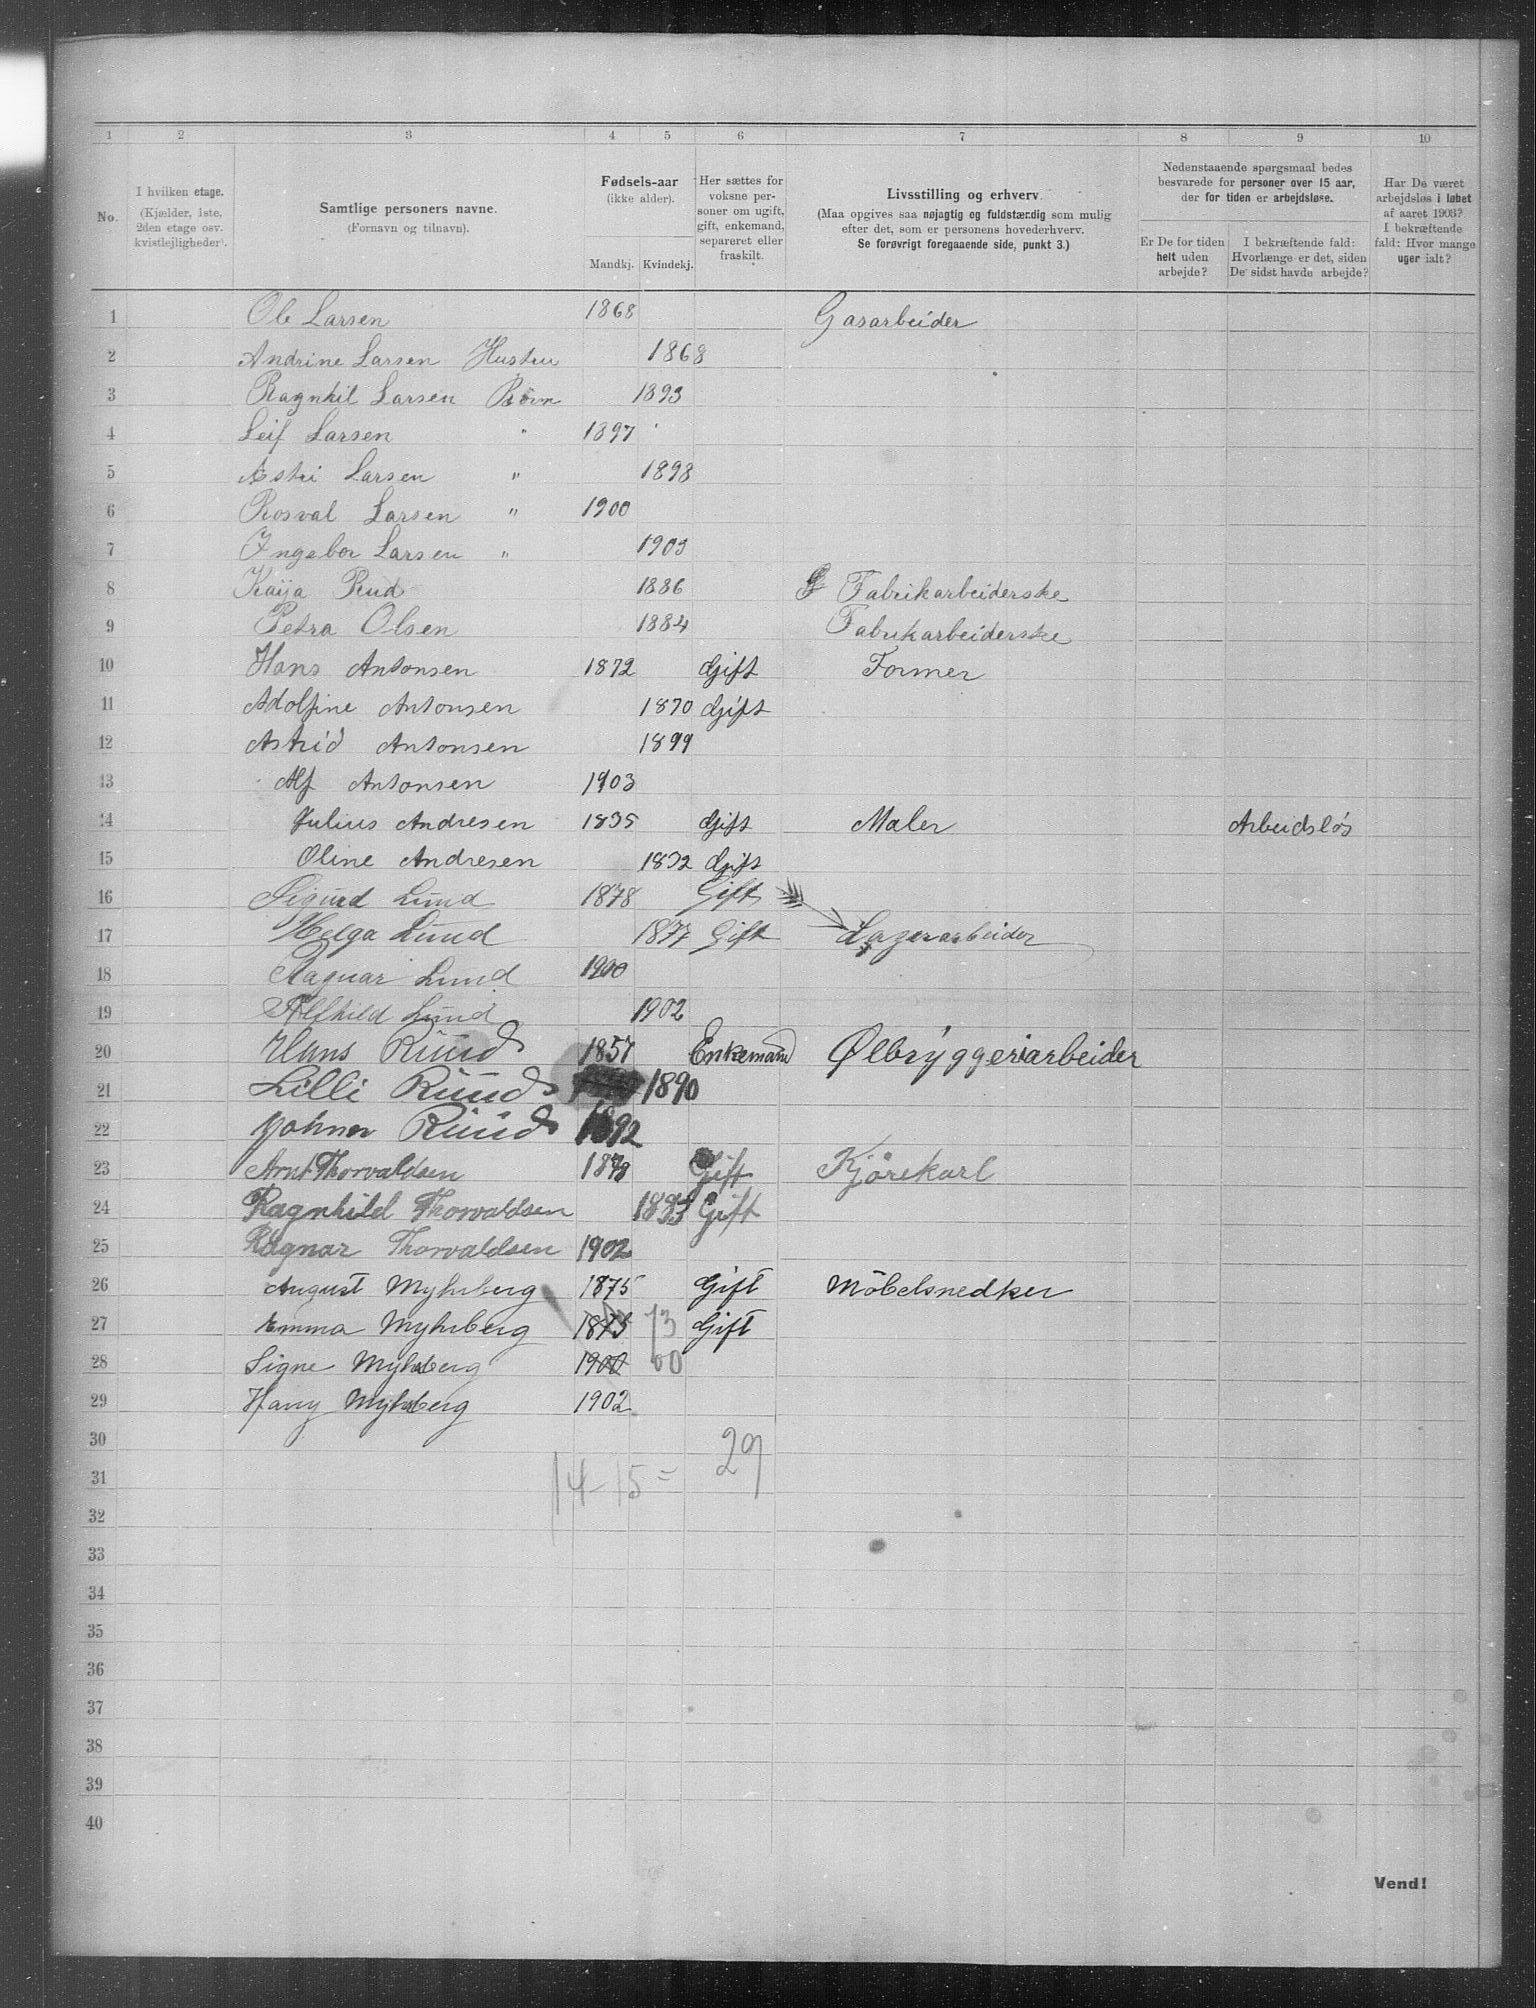 1 2 3 4 5 6 7 8 9 10
No.
I hvilken etage.
(Kjælder, 1ste,
2den etage osv.
kvistlejligheder).
Samtlige personers navne.
(Fornavn og tilnavn).
Fødsels-aar
(ikke alder).
Mandkj. Kvindekj.
Her sættes for
voksne per-
soner om ugift,
gift, enkemand,
separeret eller
fraskilt.
Livsstilling og erhverv.
(Maa opgives saa nøjagtig og fuldstændig som mulig
efter det, som er personens hovederhverv.
Se forøvrigt foregaaende side, punkt 3.)
Nedenstaaende spørgsmaal bedes
besvarede for personer over 15 aar,
der for tiden er arbejdsløse.
Er De for tiden
helt uden
arbejde?
I bekræftende fald:
Hvorlænge er det, siden
De sidst havde arbejde?
Har De været
arbejdsløs i løbet
af aaret 1903?
I bekræftende
fald: Hvor mange
uger ialt?
1 Ole Larsen 1868 Gasarbeider
2 Andrine Larsen Hustru 1868
3 Ragnhil Larsen Børn 1893
4 Leif Larsen " 1897
5 Astri Larsen " 1898
6 Rosval Larsen " 1900
7 Ingebor Larsen " 1903
8 Kaija Rud 1886 Fabrikarbeiderske
9 Petra Olsen 1884 Fabrikarbeiderske
10 Hans Antonsen 1872 Gift Former
11 Adolfine Antonsen 1870 Gift
12 Astrid Antonsen 1899
13 Alf Antonsen 1903
14 Julius Andresen 1835 Gift Maler Arbeidsløs
15 Oline Andresen 1832 Gift
16 Sigurd Lund 1878 Gift
17 Helga Lund 1877 Gift Lagerarbeider
18 Ragnar Lund 1900
19 Alfhild Lund 1902
20 Hans Ruud 1857 Enkemand Ølbryggeriarbeider
21 Lilli Ruud 1890
22 Ruud 1892
23 Arnt Thorvaldsen Gift Kjörekarl
24 Ragnhild Thorvaldsen Gift
25 Ragnar Thorvaldsen 1902
26 August Myhrberg 1875 Gift Möbelsnedker
27 Emma Myhrberg 1873 73 Gift
28 Signe Myhrberg 1900 00
29 Harry Myhrberg 1902
30
29
31
14-15=
32
33
34
35
36
37
38
39
40
Vend!